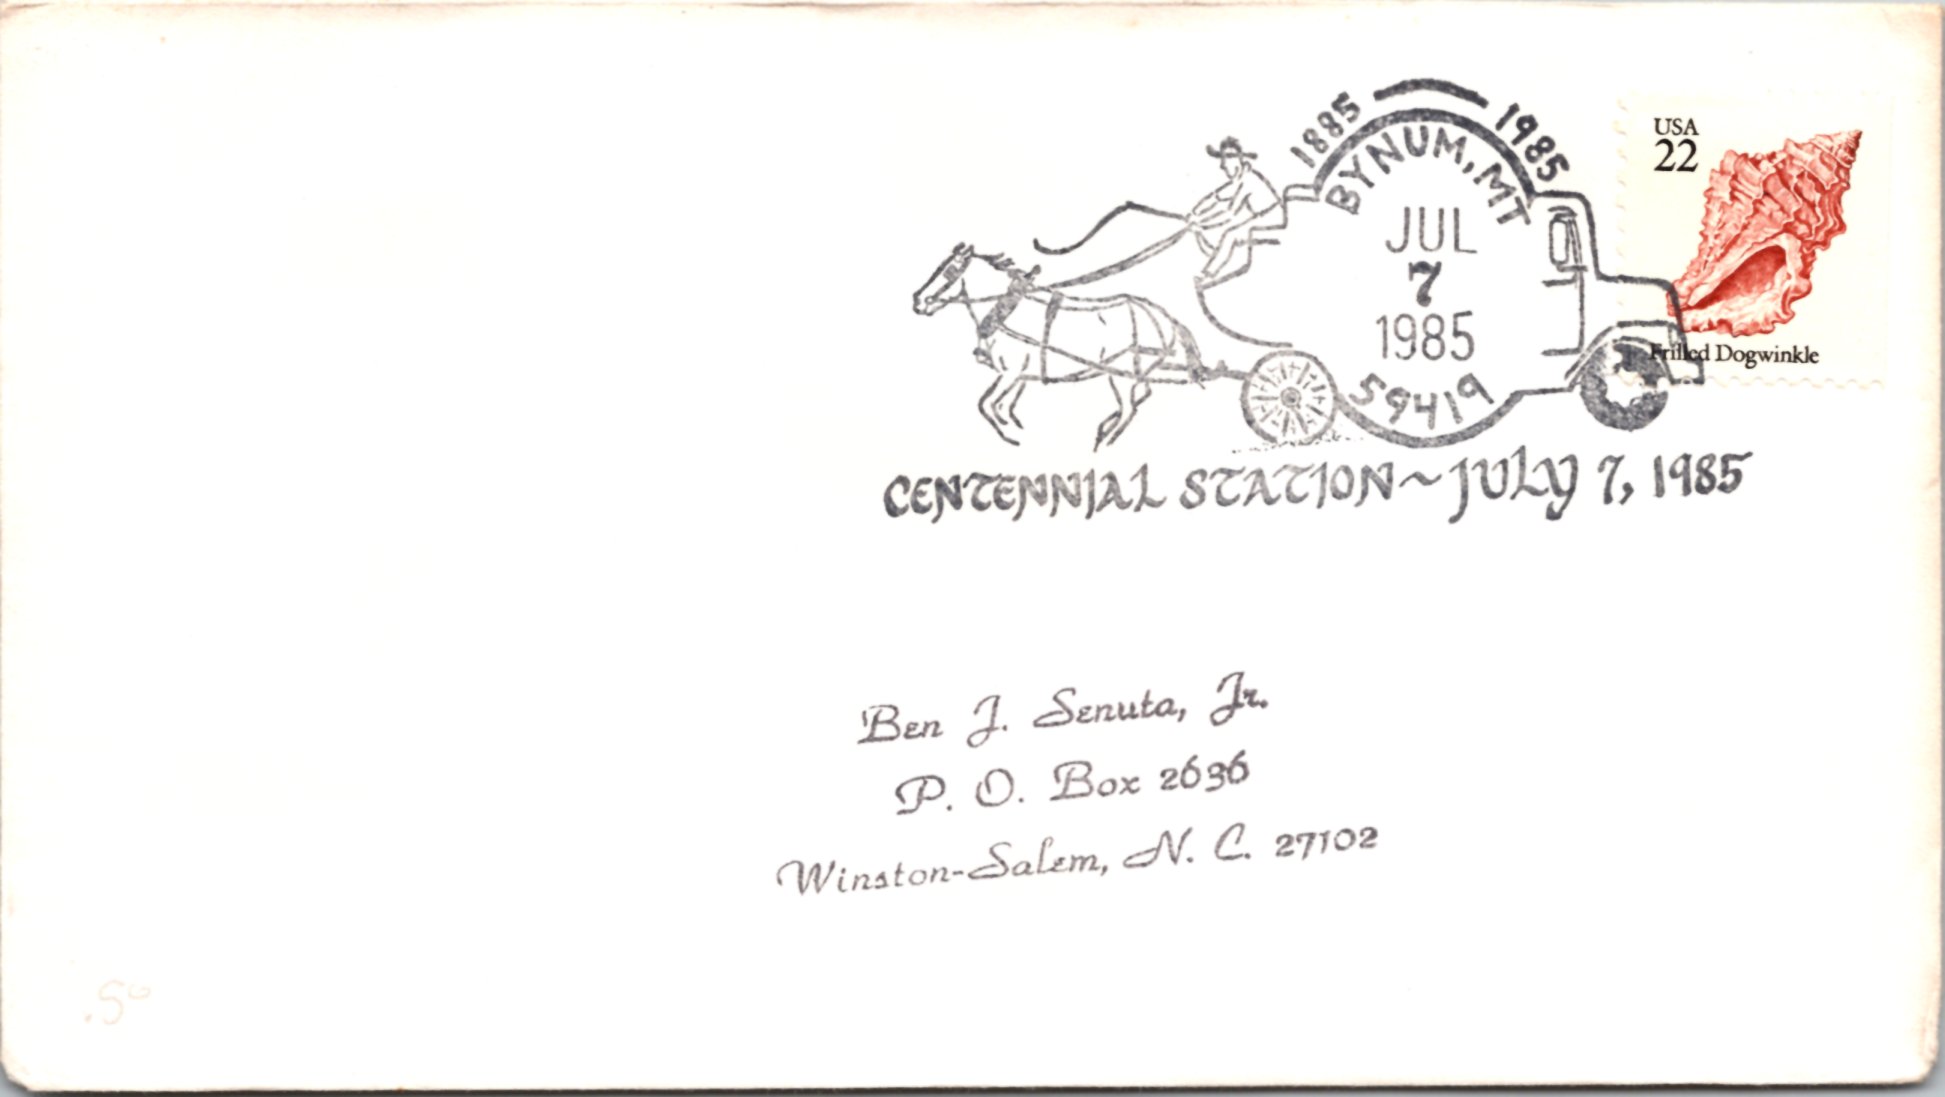 1885 — 1985
BYNUM, MT
JUL
7
1985
59419
CENTENNIAL STATION ~ JULY 7, 1985
USA
22
Frilled Dogwinkle
Ben J. Senuta, Jr.
P. O. Box 2636
Winston-Salem, N. C. 27102
.50